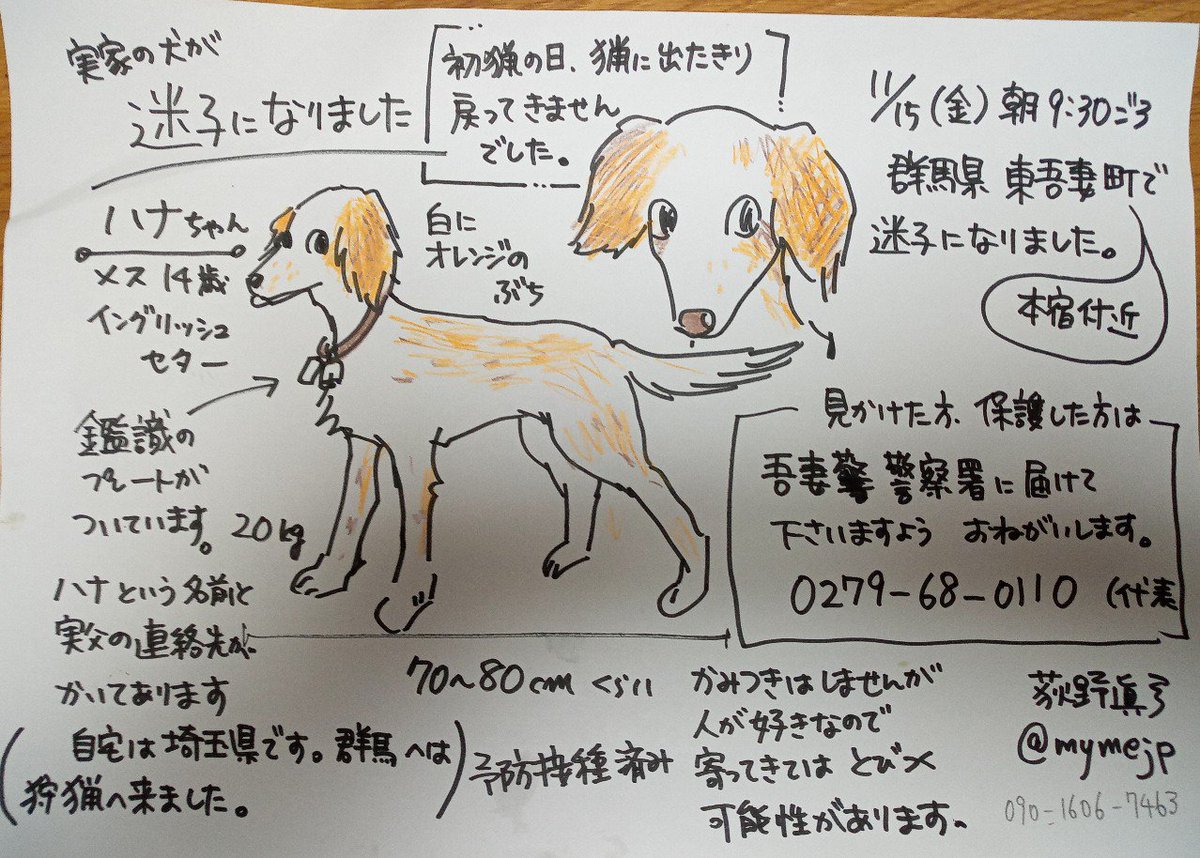 実家の犬が
迷子になりました
初猟の日、猟に出たきり
戻ってきません
でした。
11/15(金)朝9:30ごろ
群馬県 東吾妻町で
迷子になりました。
本宿付近
ハナちゃん
メス14歳
イングリッシュ
セター
白に
オレンジの
ぶち
鑑識の
プレートが
ついています。
20kg
ハナという名前と
実父の連絡先が
かいてあります
70〜80cmくらい
見かけた方、保護した方は
吾妻警 警察署に届けて
下さいますよう おねがいします。
0279-68-0110 (代表
(自宅は埼玉県です。群馬へは
狩猟へ来ました。)
予防接種済み
かみつきはしませんが
人が好きなので
寄ってきては とびつく
可能性があります。
荻野眞弓
@mymejp
090-1606-7463